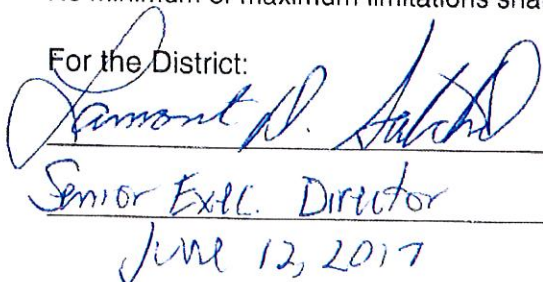 No minimum or maximum limitations sha
For the District:
Lamont D.
Senior Exec. Director
June 12, 2017